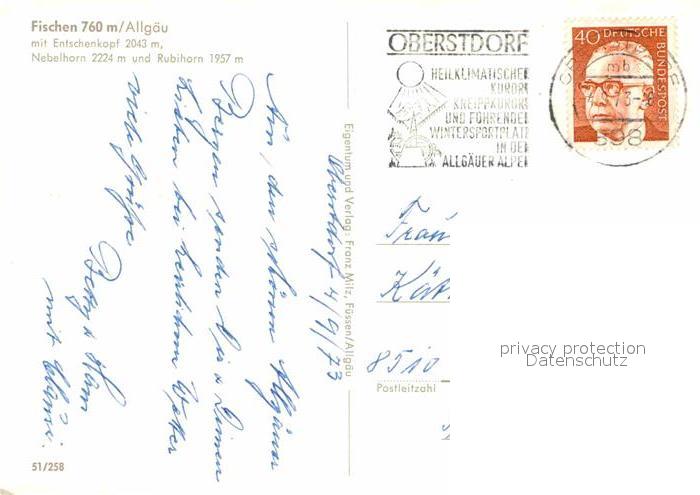 Fischen 760 m/Allgäu
mit Entschenkopf 2043 m,
Nebelhorn 2224 m und Rubihorn 1957 m
OBERSTDORF
HEILKLIMATISCHER
KURORT
KNEIPPKURORT
UND FÜHRENDER
WINTERSPORTPLATZ
IN DEN
ALLGÄUER ALPEN
40 DEUTSCHE BUNDESPOST
mb
898
Oberstdorf 4/9/73
Aus den schönen Allgäuer
Bergen senden Dir u. Deinen
Lieben bei herrlichem Wetter
viele Grüße
mit
Eigentum und Verlag: Franz Milz, Füssen/Allgäu
Frau
Kät
8510
Postleitzahl
privacy protection
Datenschutz
51/258